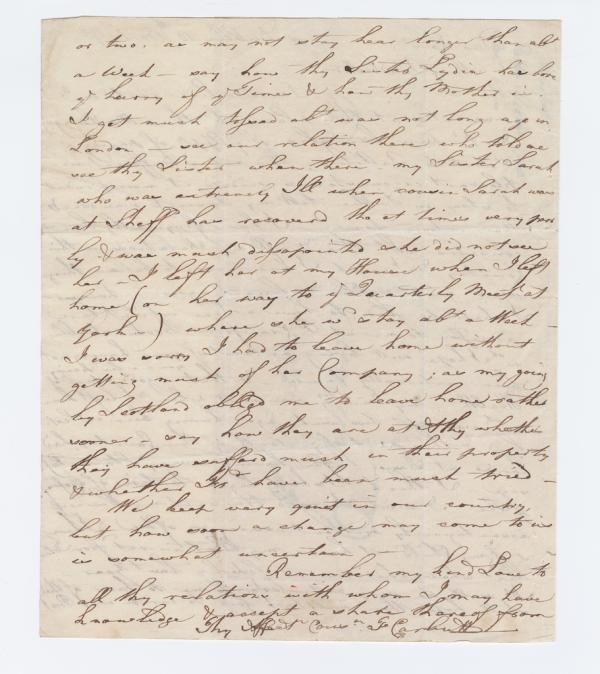 or two. as may not stay hear longer than abt
a Week – say how thy Sister Lydia has bore
ye hurry of ye Times & how thy Mother is.
I get much tossed abt was not long ago in
London – see our relation there who told me
see thy Sister when there. my Sister Sarah
who was extremely Ill when cousin Sarah was
at Sheffd has recoverd tho at times very poor
ly & was much disapointed she did not see
her – I left her at my House when I left
home (on her way to ye Quarterly Meetg at
York –) where she wd stay abt a Week –
I was sorry I had to leave home without
getting much of her Company, as my going
by Scotland obliged me to leave home rather
sooner – say how they are at whether
they have sufferd much in their property
& whether Frds have been much tried –
We keep very quiet in our country,
but how soon a change may come to us
is somewhat uncertain –
Remember my kind Love to
all thy relations with whom I may have
knowledge & accept a share thereof from
Thy Affect Cousn